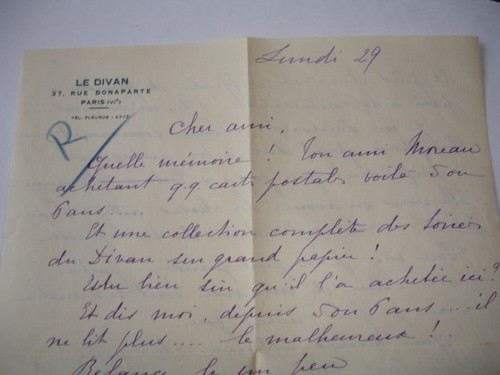 LE DIVAN
37, RUE BONAPARTE
PARIS (VIe)
TÉL. FLEURUS
Lundi 29
R
Cher ami,
Quelle mémoire ! Ton ami Moreau
achetant q.q. cartes postales voilà 5 ou
6 ans....
Et une collection complète des Soirées
du Divan sur grand papier !
Es tu bien sûr qu'il l'a achetée ici ?
Et dis moi, depuis 5 ou 6 ans.... il
ne lit plus.... le malheureux !..
Relance le un peu